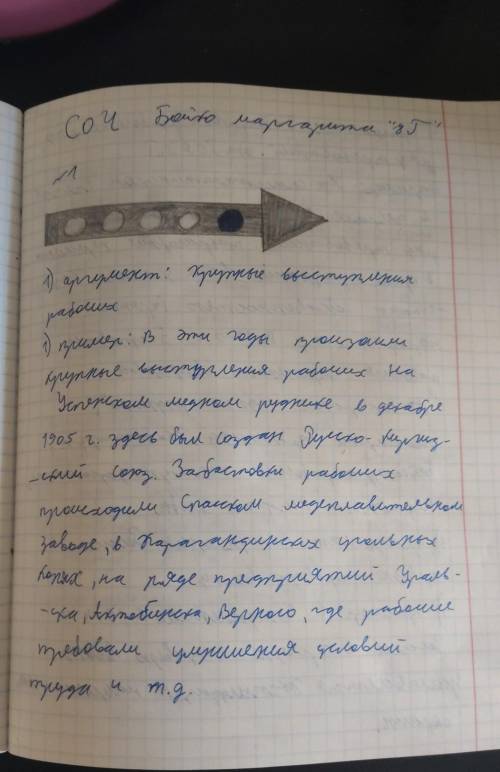 СОЧ Бойко маргарита "8Г"
№1
1) аргумент: Крупные выступления
рабочих
1) пример: В эти годы произошли
крупные выступления рабочих на
Успенском медном руднике в декабре
1905 г. здесь был создан Русско-Киргиз-
-ский союз. Забастовки рабочих
происходили Спасском медеплавительном
заводе, в Карагандинских угольных
копях, на ряде предприятий Ураль-
-ска, Актюбинска, Верного, где рабочие
требовали улучшения условий
труда и т.д.